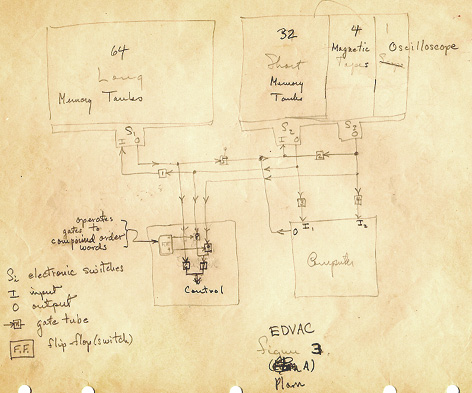 64
Long
Memory Tanks
32
Short
Memory
Tanks
4
Magnetic
Tapes
1
Oscilloscope
S1
I O
S2
I O
S3
O
operates
gates to
compound order
words
F.F.
Control
O I1 I2
Computer
S2 electronic switches
I input
O output
gate tube
F.F. flip-flop (switch)
EDVAC
Figure 3
A)
Plan